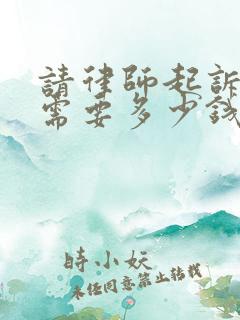 請律師起訴
需要多少錢
時小妖
未经同意禁止转载